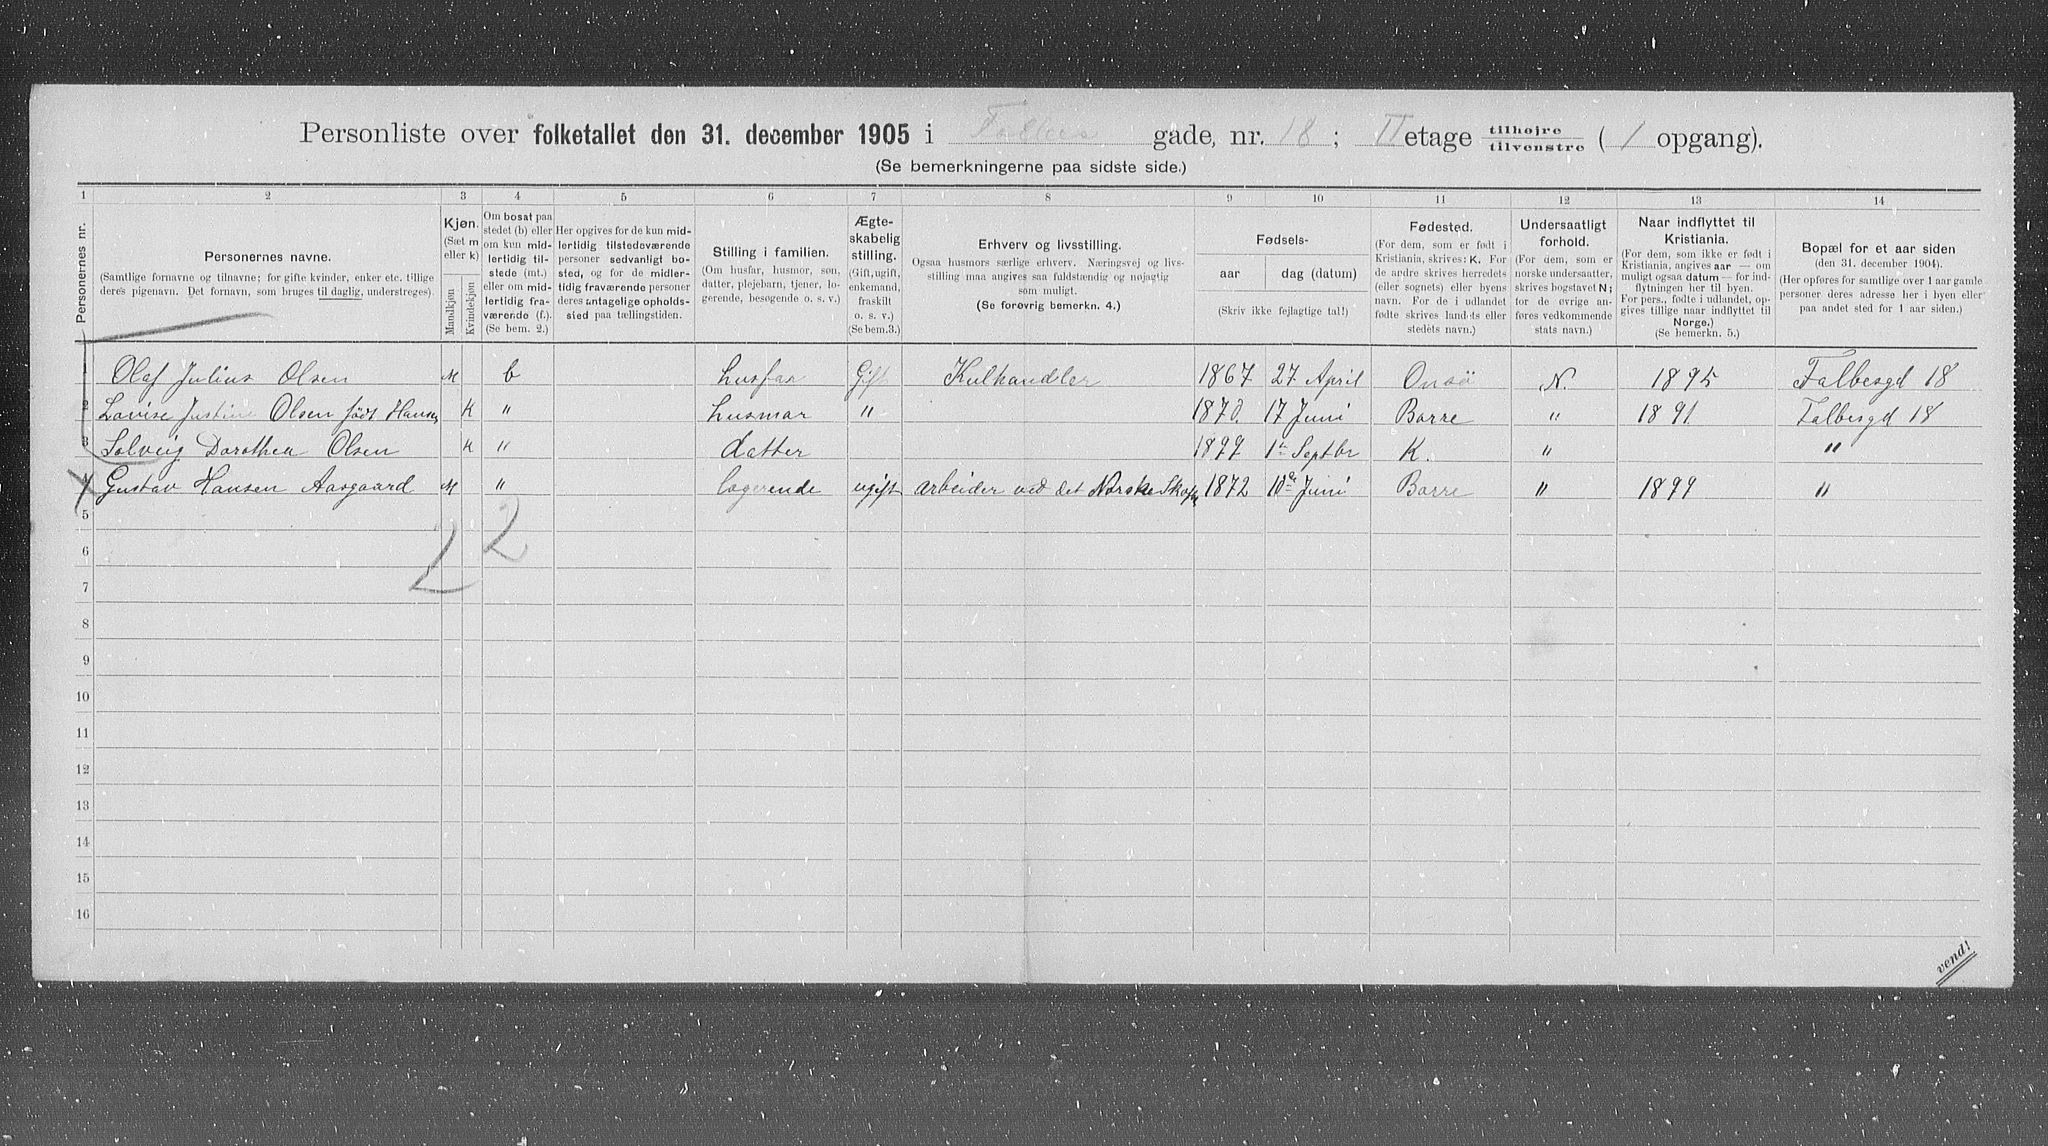 Personliste over folketallet den 31. december 1905 i Falbes gade, nr. 18; II etage tilhøjre tilvenstre (1 opgang).
(Se bemerkningerne paa sidste side.)
1 2 3 4 5 6 7 8 9 10 11 12 13 14
Personernes nr.
Personernes navne.
(Samtlige fornavne og tilnavne; for gifte kvinder, enker etc. tillige
deres pigenavn. Det fornavn, som bruges til daglig, understreges).
Kjøn.
(Sæt m
eller k)
Mandkjøn
Kvindekjøn
Om bosat paa
stedet (b) eller
om kun mid-
lertidig til-
stede (mt.)
eller om mid-
lertidig fra-
værende (f.).
(Se bem. 2.)
Her opgives for de kun mid-
lertidig tilstedeværende
personer sedvanligt bo-
sted, og for de midler-
tidig fraværende personer
deres antagelige opholds-
sted paa tællingstiden.
Stilling i familien.
(Om husfar, husmor, søn,
datter, plejebarn, tjener, lo-
gerende, besøgende o. s. v.)
Ægte-
skabelig
stilling.
(Gift, ugift,
enkemand,
fraskilt
o. s. v.)
(Se bem.3.)
Erhverv og livsstilling.
Ogsaa husmors særlige erhverv. Næringsvej og livs-
stilling maa angives saa fuldstændig og nøjagtig
som muligt.
(Se forøvrig bemerkn. 4.)
Fødsels-
aar
dag (datum)
(Skriv ikke fejlagtige tal!)
Fødested.
(For dem, som er født i
Kristiania, skrives: K. For
de andre skrives herredets
(eller sognets) eller byens
navn. For de i udlandet
fødte skrives landets eller
stedets navn.)
Undersaatligt
forhold.
(For dem, som er
norske undersaatter,
skrives bogstavet N;
for de øvrige an-
føres vedkommende
stats navn.)
Naar indflyttet til
Kristiania.
(For dem, som ikke er født i
Kristiania, angives aar — om
muligt ogsaa datum — for ind-
flytningen her til byen.
For pers., fødte i udlandet, op-
gives tillige naar indflyttet til
Norge.)
(Se bemerkn. 5.)
Bopæl for et aar siden
(den 31. december 1904).
(Her opføres for samtlige over 1 aar gamle
personer deres adresse her i byen eller
paa andet sted for 1 aar siden.)
1 Olaf Julius Olsen M b husfar Gift Kulhandler 1867 27 April Onsö N. 1895 Falbesgd 18
2 Lovise Justine Olsen født Hansen K " husmor " 1870. 17 Juni Borre " 1891 Falbesgd 18
3 Solveig Dorothea Olsen K " datter 1899 1ste Septbr K. " "
4 Gustav Hansen Aasgaard M " logerende ugift arbeider ved det Norske 1872 10de Juni Borre " 1899 "
22
5
6
7
8
9
10
11
12
13
14
15
16
vend!